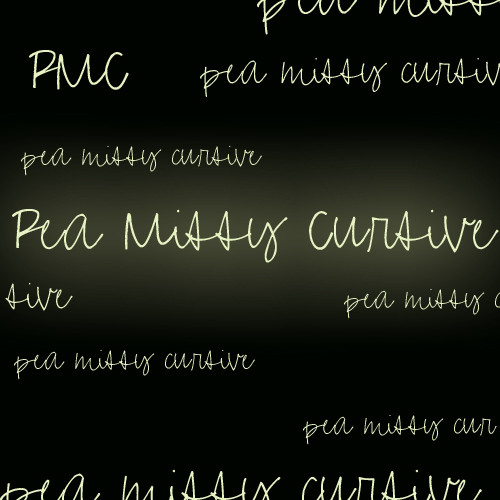 pea miss
PMC
pea missy cursiv
pea missy cursive
Pea Missy Cursive
sive
pea missy c
pea missy cursive
pea missy cur
pea missy cursive